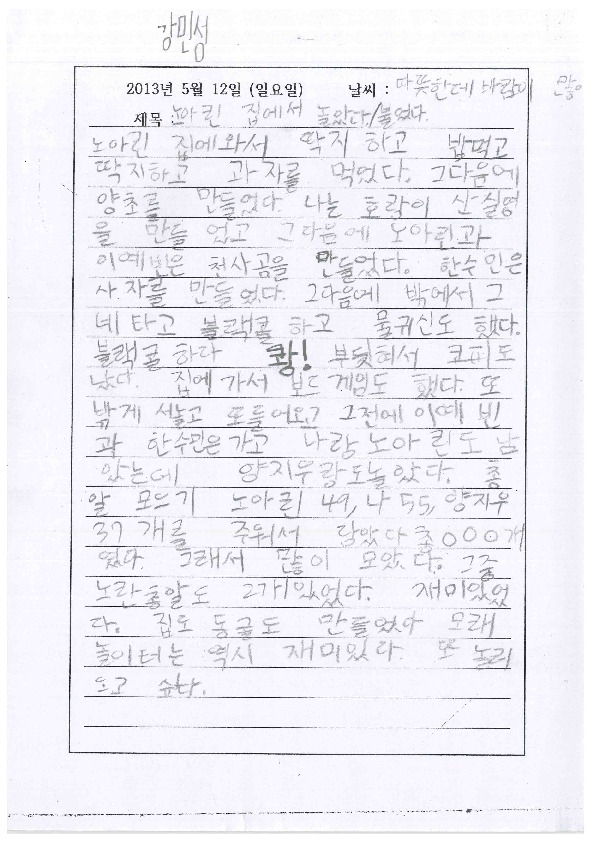 강민성
2013년 5월 12일 (일요일) 날씨 : 따뜻한데 바람이 많이
제목 : 노아린 집에서 놀았다/불었다.
노아린 집에와서 딱지 하고 밥먹고
딱지하고 과자를 먹었다. 그다음에
양초를 만들었다. 나는 호랑이 산실령
을 만들 었고 그다음에 노아린과
이예빈은 천사곰을 만들었다. 한수민은
사자를 만들었다. 그다음에 밖에서 그
네 타고 블랙홀 하고 물귀신도 했다.
블랙홀 하다 쾅! 부딪혀서 코피도
났다. 집에 가서 보드 게임도 했다. 또
밖게 서놀고 또들어오고 그전에 이예빈
과 한수민은가고 나랑노아린도 남
았는데 양지우랑도놀았다. 총
알 모으기 노아린 49, 나 55, 양지우
37개를 주워서 담았다 총000개
였다. 그래서 많이 모았다. 그중
노란총알도 2개있었다. 재미있었
다. 집도 동굴도 만들었다 모래
놀이터는 역시 재미있다. 또 놀러
오고 싶다.